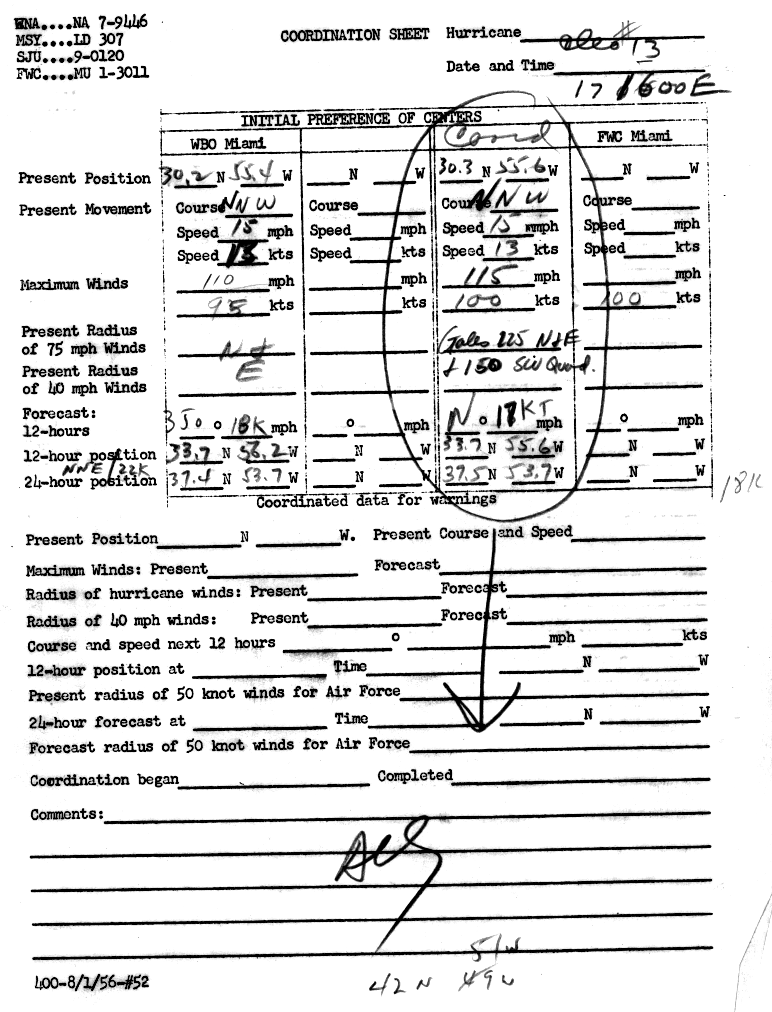 WNA....NA 7-9446
MSY....LD 307
SJU....9-0120
FWC....MU 1-3011
COORDINATION SHEET Hurricane Cleo #13
Date and Time 17 1600E
INITIAL PREFERENCE OF CENTERS
WBO Miami Coord FWC Miami
Present Position 30.2 N 55.4 W N W 30.3 N 55.6 W N W
Present Movement Course NNW Course Course NNW Course
Speed 15 mph Speed mph Speed 15 mph Speed mph
Speed 13 kts Speed kts Speed 13 kts Speed kts
Maximum Winds 110 mph mph 115 mph mph
95 kts kts 100 kts 100 kts
Present Radius
of 75 mph Winds N & E Gales 225 N&E
Present Radius + 150 SW Quad.
of 40 mph Winds
Forecast:
12-hours 350 o 18K mph o mph N o 17KT mph o mph
12-hour position 33.7 N 56.2 W N W 33.7 N 55.6 W N W
NNE/22K
24-hour position 37.4 N 53.7 W N W 37.5 N 53.7 W N W
18K
Coordinated data for warnings
Present Position N W. Present Course and Speed
Maximum Winds: Present Forecast
Radius of hurricane winds: Present Forecast
Radius of 40 mph winds: Present Forecast
Course and speed next 12 hours o mph kts
12-hour position at Time N W
Present radius of 50 knot winds for Air Force
24-hour forecast at Time N W
Forecast radius of 50 knot winds for Air Force
Coordination began Completed
Comments:
51W
42 N 49W
400-8/1/56-#52